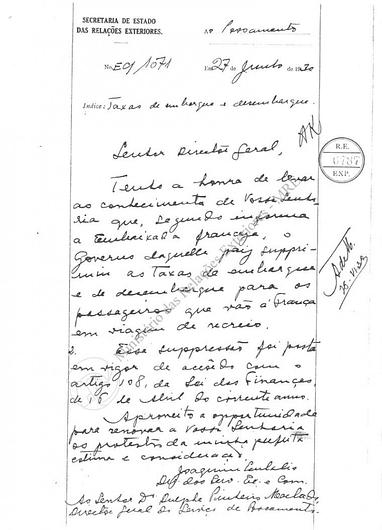 SECRETARIA DE ESTADO
DAS RELAÇÕES EXTERIORES.
Ao Povoamento
No. EC/1071
Em 27 de Junho de 1930
Indice: Taxas de embarque e desembarque.
Senhor Director Geral,
R.E.
0787
EXP.
Tenho a honra de levar
ao conhecimento de Vossa Senho-
ria que, segundo informa
a Embaixada franceza, o
Governo daquelle paiz suppri-
miu as taxas de embarque
e de desembarque para os
passageiros que vão á França
em viagem de recreio.
2. Essa suppressão foi posta
em vigor de accôrdo com o
artigo 108, da Lei das Finanças,
de 16 de Abril do corrente anno.
Aproveito a opportunidade
para renovar a Vossa Senhoria
os protestos da minha perfeita
estima e consideração.
Joaquim Eulalio
Dir. dos Serv. Ec. e Com.
Ao Senhor Dr. Dulphe Pinheiro Machado,
Director Geral do Serviço de Povoamento.
Ministério das Relações Exteriores - MRE